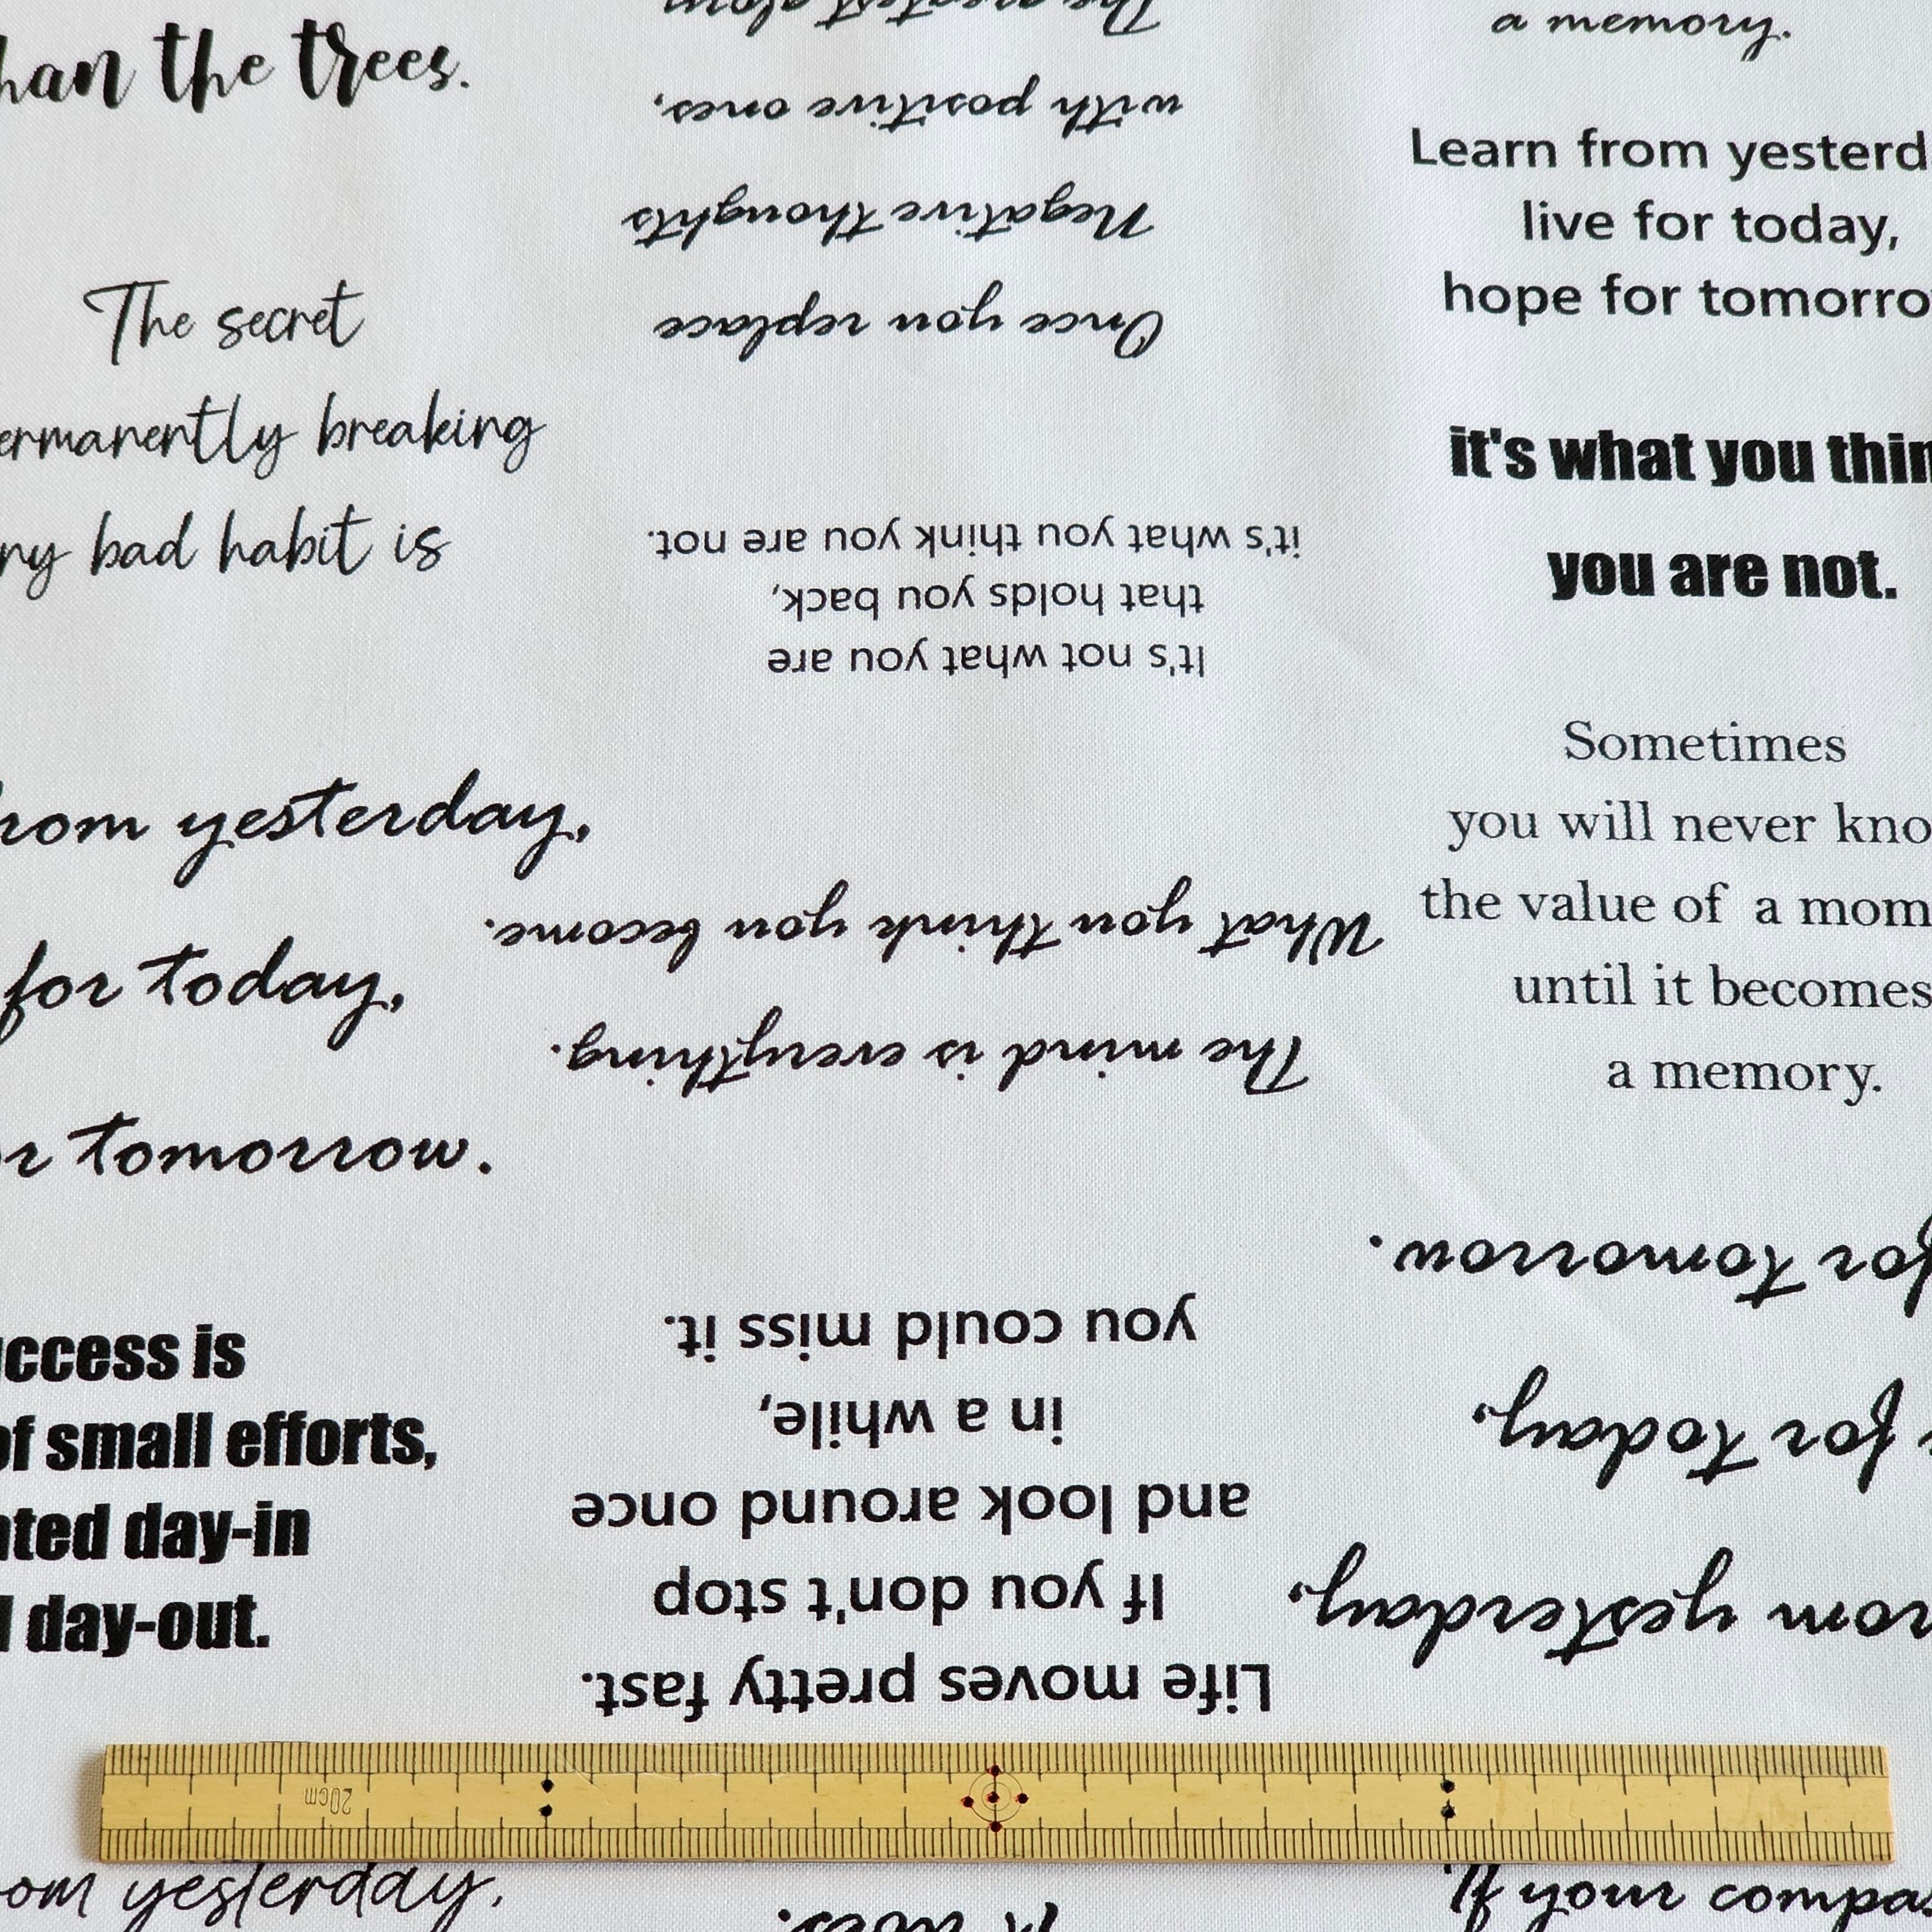 than the trees.
The secret
permanently breaking
any bad habit is
from yesterday,
for today,
for tomorrow.
success is
of small efforts,
day-in
day-out.
yesterday,
Once you replace
Negative thoughts
with positive ones,
It's not what you are
that holds you back,
it's what you think you are not.
The mind is everything.
What you think you become.
Life moves pretty fast.
If you don't stop
and look around once
in a while,
you could miss it.
a memory.
Learn from yesterd
live for today,
hope for tomorro
it's what you thin
you are not.
Sometimes
you will never kno
the value of a mom
until it becomes
a memory.
from yesterday,
for today,
for tomorrow.
20cm
If your compa